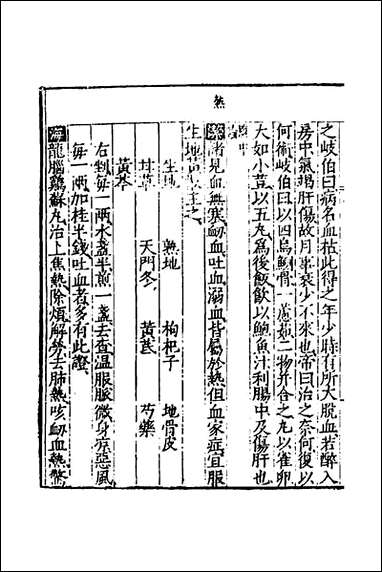 熱
之歧伯曰病名血枯此得之年少時有所大脫血若醉入
房中氣竭肝傷故月事衰少不來也帝曰治之奈何復以
何術歧伯曰以四烏鰂骨一藘茹二物并合之丸以雀卵
大如小荳以五丸為後飯飲以鮑魚汁利腸中及傷肝也
諸見血無寒衂血吐血溺血皆屬於熱但血家症宜服
生地黃主之
生地 熟地 枸杞子 地骨皮
甘草 天門冬 黃芪 芍藥
黃芩
右剉每一兩水盞半煎一盞去查溫服脈微身疼惡風
每一兩加桂半錢吐血者多有此證
海龍腦雞蘇丸治上焦熱除煩解勞去肺熱咳衂血熱驚